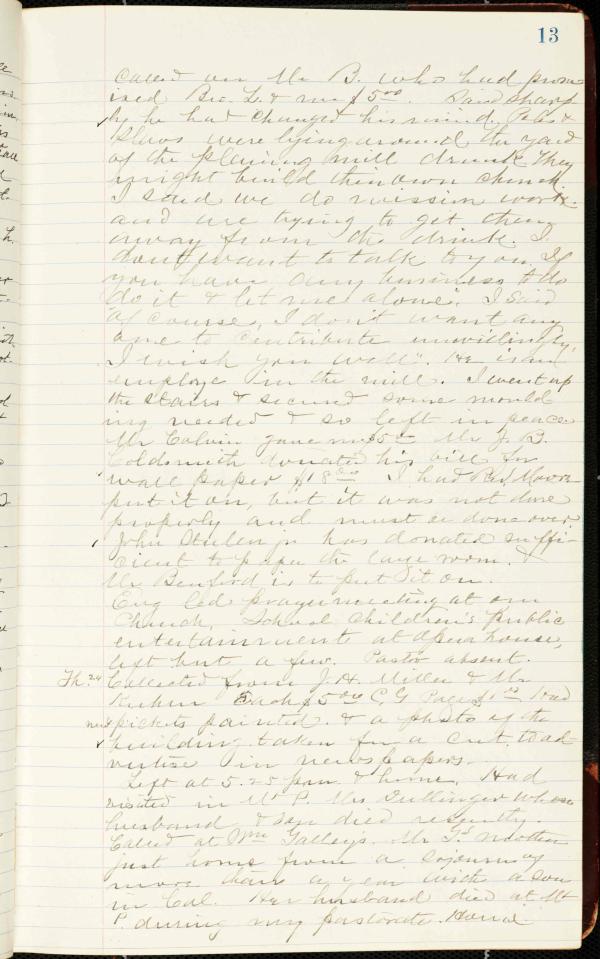 13
called on Mr B. who had prom
ised Bro. L. & me $5.00. Said sharp
ly he had changed his mind. Poles &
Slavs were lying around the yard
of the planing mill drunk. They
might build their own church.
I said we do mission work
and are trying to get them
away from the drink. I
dont want to talk to you. If
you have any business to do
do it & let me alone". I said
"Of course, I don't want any
one to contribute unwillingly.
I wish you well". He is an
employe in the mill. I went up
the stairs & secured some mould
ing needed & so left in peace
Mr Colvin gave me $5.00 Mr J. B.
Goldsmith donated his bill for
wall paper $18.00 I had Moore
put it on, but it was not done
properly and must be done over.
John Stulen jr has donated suffi-
cient to paper the large room. &
Mr Benford is to put it on.
Eug led prayermeeting at our
Church. School children's public
entertainment at opera house,
left but a few. Pastor absent.
Th. 24 Collected from J. H. Miller & Mr.
Each $5.00 C. G. $1.00 Had
pickets painted. & a photo of the
building taken for a cut to ad
vertise in newspapers.
Left at 5.25 p.m. & home. Had
visited in Mt P. Mrs Dullinger whose
husband & son died recently.
Called at Wm Galley's. Mr G's mother
just home from a sojourn of
more than a year with a son
in Cal. Her husband died at Mt
P. during my pastorate. Home